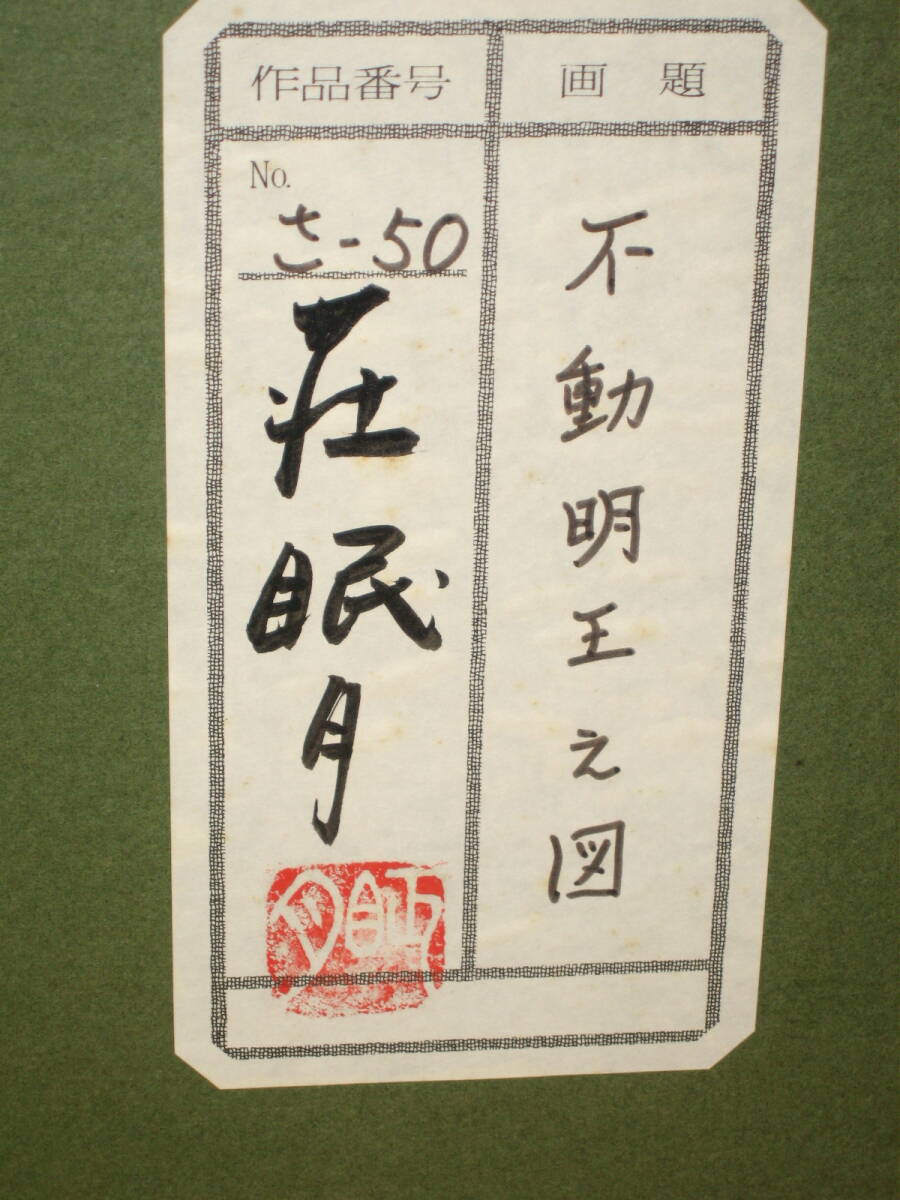 作品番号
画題
No.
さ-50
荘眠月
不動明王之図